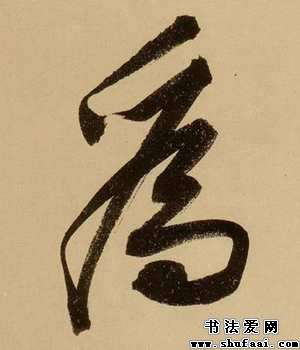 為
书法爱网
www.shufaai.com